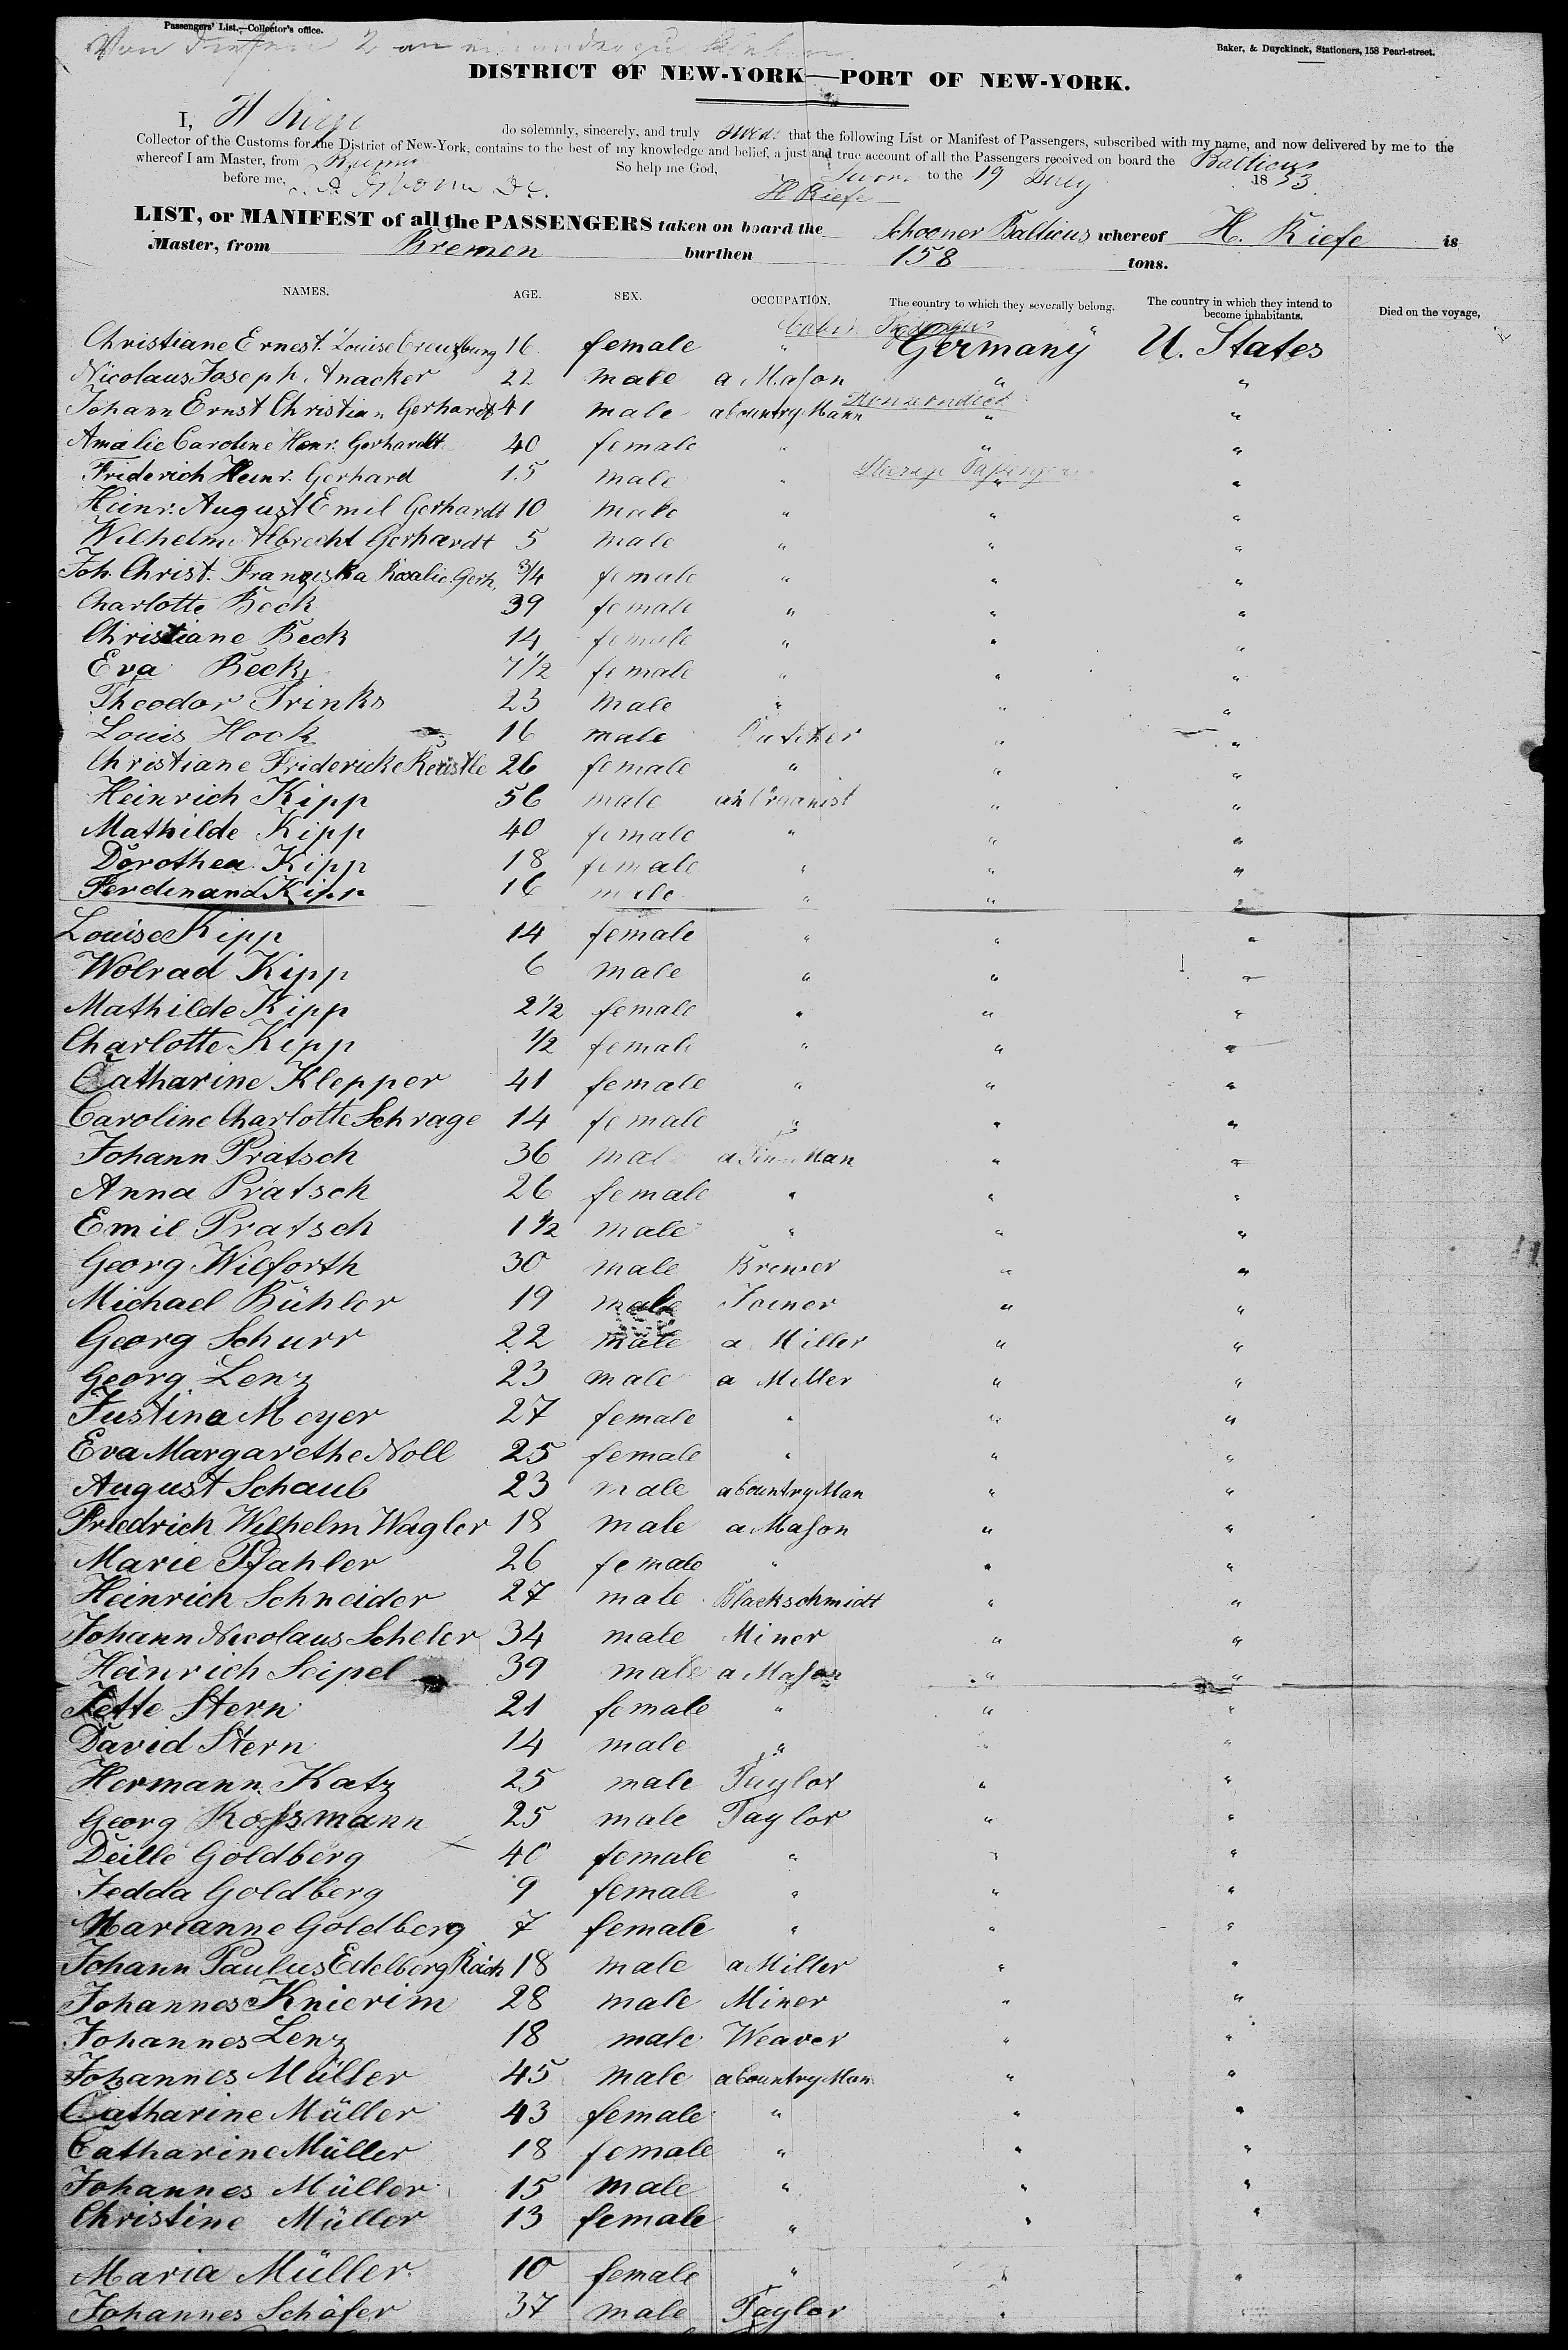 Passengers' List.—Collector's office.
Baker, & Duyckinck, Stationers, 158 Pearl-street.
DISTRICT OF NEW-YORK—PORT OF NEW-YORK.
I, H Riefe do solemnly, sincerely, and truly that the following List or Manifest of Passengers, subscribed with my name, and now delivered by me to the
Collector of the Customs for the District of New-York, contains to the best of my knowledge and belief, a just and true account of all the Passengers received on board the Balticus
whereof I am Master, from Bremen So help me God,
before me, Sworn to the 19 July 1853.
H Riefe
LIST, or MANIFEST of all the PASSENGERS taken on board the Schooner Balticus whereof H. Riefe is
Master, from Bremen burthen 158 tons.
NAMES. AGE. SEX. OCCUPATION. The country to which they severally belong. The country in which they intend to become inhabitants. Died on the voyage,
Christiane Ernest. Louise Creutzburg 16 female " Germany U. States
Nicolaus Joseph Anacker 22 male a Mason " "
Johann Ernst Christian Gerhardt 41 male a Country Mann " "
Amalie Caroline Henr. Gerhardt 40 female " " "
Friderich Heinr. Gerhard 15 male " Steerage Passengers " "
Heinr. August Emil Gerhardt 10 male " " "
Wilhelm Albrecht Gerhardt 5 male " " "
Joh. Christ. Franziska Rosalie Gerh. 3/4 female " " "
Charlotte Beck 39 female " " "
Christiane Beck 14 female " " "
Eva Beck 7 1/2 female " " "
Theodor Trinks 23 male " " "
Louis Hock 16 male Butcher " "
Christiane Fridericke Keüstle 26 female " " "
Heinrich Kipp 56 male an Organist " "
Mathilde Kipp 40 female " " "
Dorothea Kipp 18 female " " "
Ferdinand Kipp 16 male " " "
Louise Kipp 14 female " " "
Wolrad Kipp 6 male " " "
Mathilde Kipp 2 1/2 female " " "
Charlotte Kipp 1/2 female " " "
Catharine Klepper 41 female " " "
Caroline Charlotte Schrage 14 female " " "
Johann Pratsch 36 male a Tin Man " "
Anna Pratsch 26 female " " "
Emil Pratsch 1 1/2 male " " "
Georg Wilforth 30 male Brewer " "
Michael Bühler 19 male Joiner " "
Georg Schurr 22 male a Miller " "
Georg Lenz 23 male a Miller " "
Justina Meyer 27 female " " "
Eva Margarethe Noll 25 female " " "
August Schaub 23 male a Country Man " "
Friedrich Wilhelm Wagler 18 male a Mason " "
Marie Pfahler 26 female " " "
Heinrich Schneider 27 male Blackschmidt " "
Johann Nicolaus Scheler 34 male Miner " "
Heinrich Seipel 39 male a Mason " "
Jette Stern 21 female " " "
David Stern 14 male " " "
Hermann Katz 25 male Taylor " "
Georg Rossmann 25 male Taylor " "
Deille Goldberg 40 female " " "
Jedda Goldberg 9 female " " "
Marianne Goldberg 7 female " " "
Johann Paulus Edelberg Reich 18 male a Miller " "
Johannes Knierim 28 male Miner " "
Johannes Lenz 18 male Weaver " "
Johannes Müller 45 male a Country Man " "
Catharine Müller 43 female " " "
Catharine Müller 18 female " " "
Johannes Müller 15 male " " "
Christine Müller 13 female " " "
Maria Müller 10 female " " "
Johannes Schäfer 37 male Taylor " "